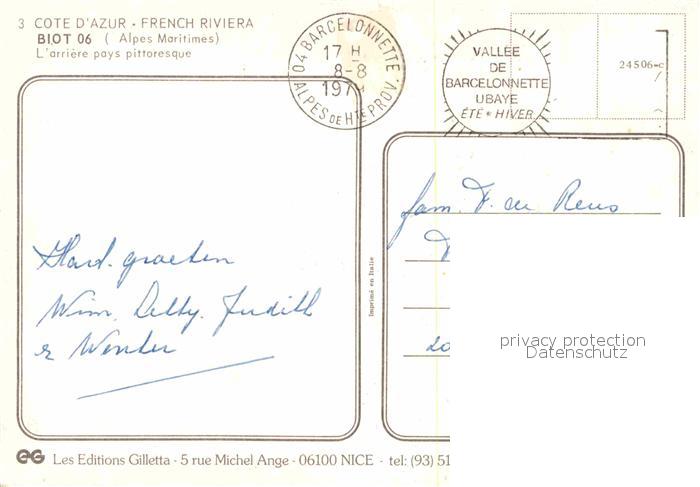 3 COTE D'AZUR - FRENCH RIVIERA
BIOT 06 ( Alpes Maritimes)
L'arrière pays pittoresque
04 BARCELONNETTE
17 H
8-8
197
ALPES DE HTE PROV.
VALLEE
DE
BARCELONNETTE
UBAYE
ÉTÉ * HIVER
24506-c
fam. F. de Reus
Hard. groeten
Wim. Detty. Judith
& Wender
20
Imprimé en Italie
privacy protection
Datenschutz
EG Les Editions Gilletta - 5 rue Michel Ange - 06100 NICE - tel: (93) 51